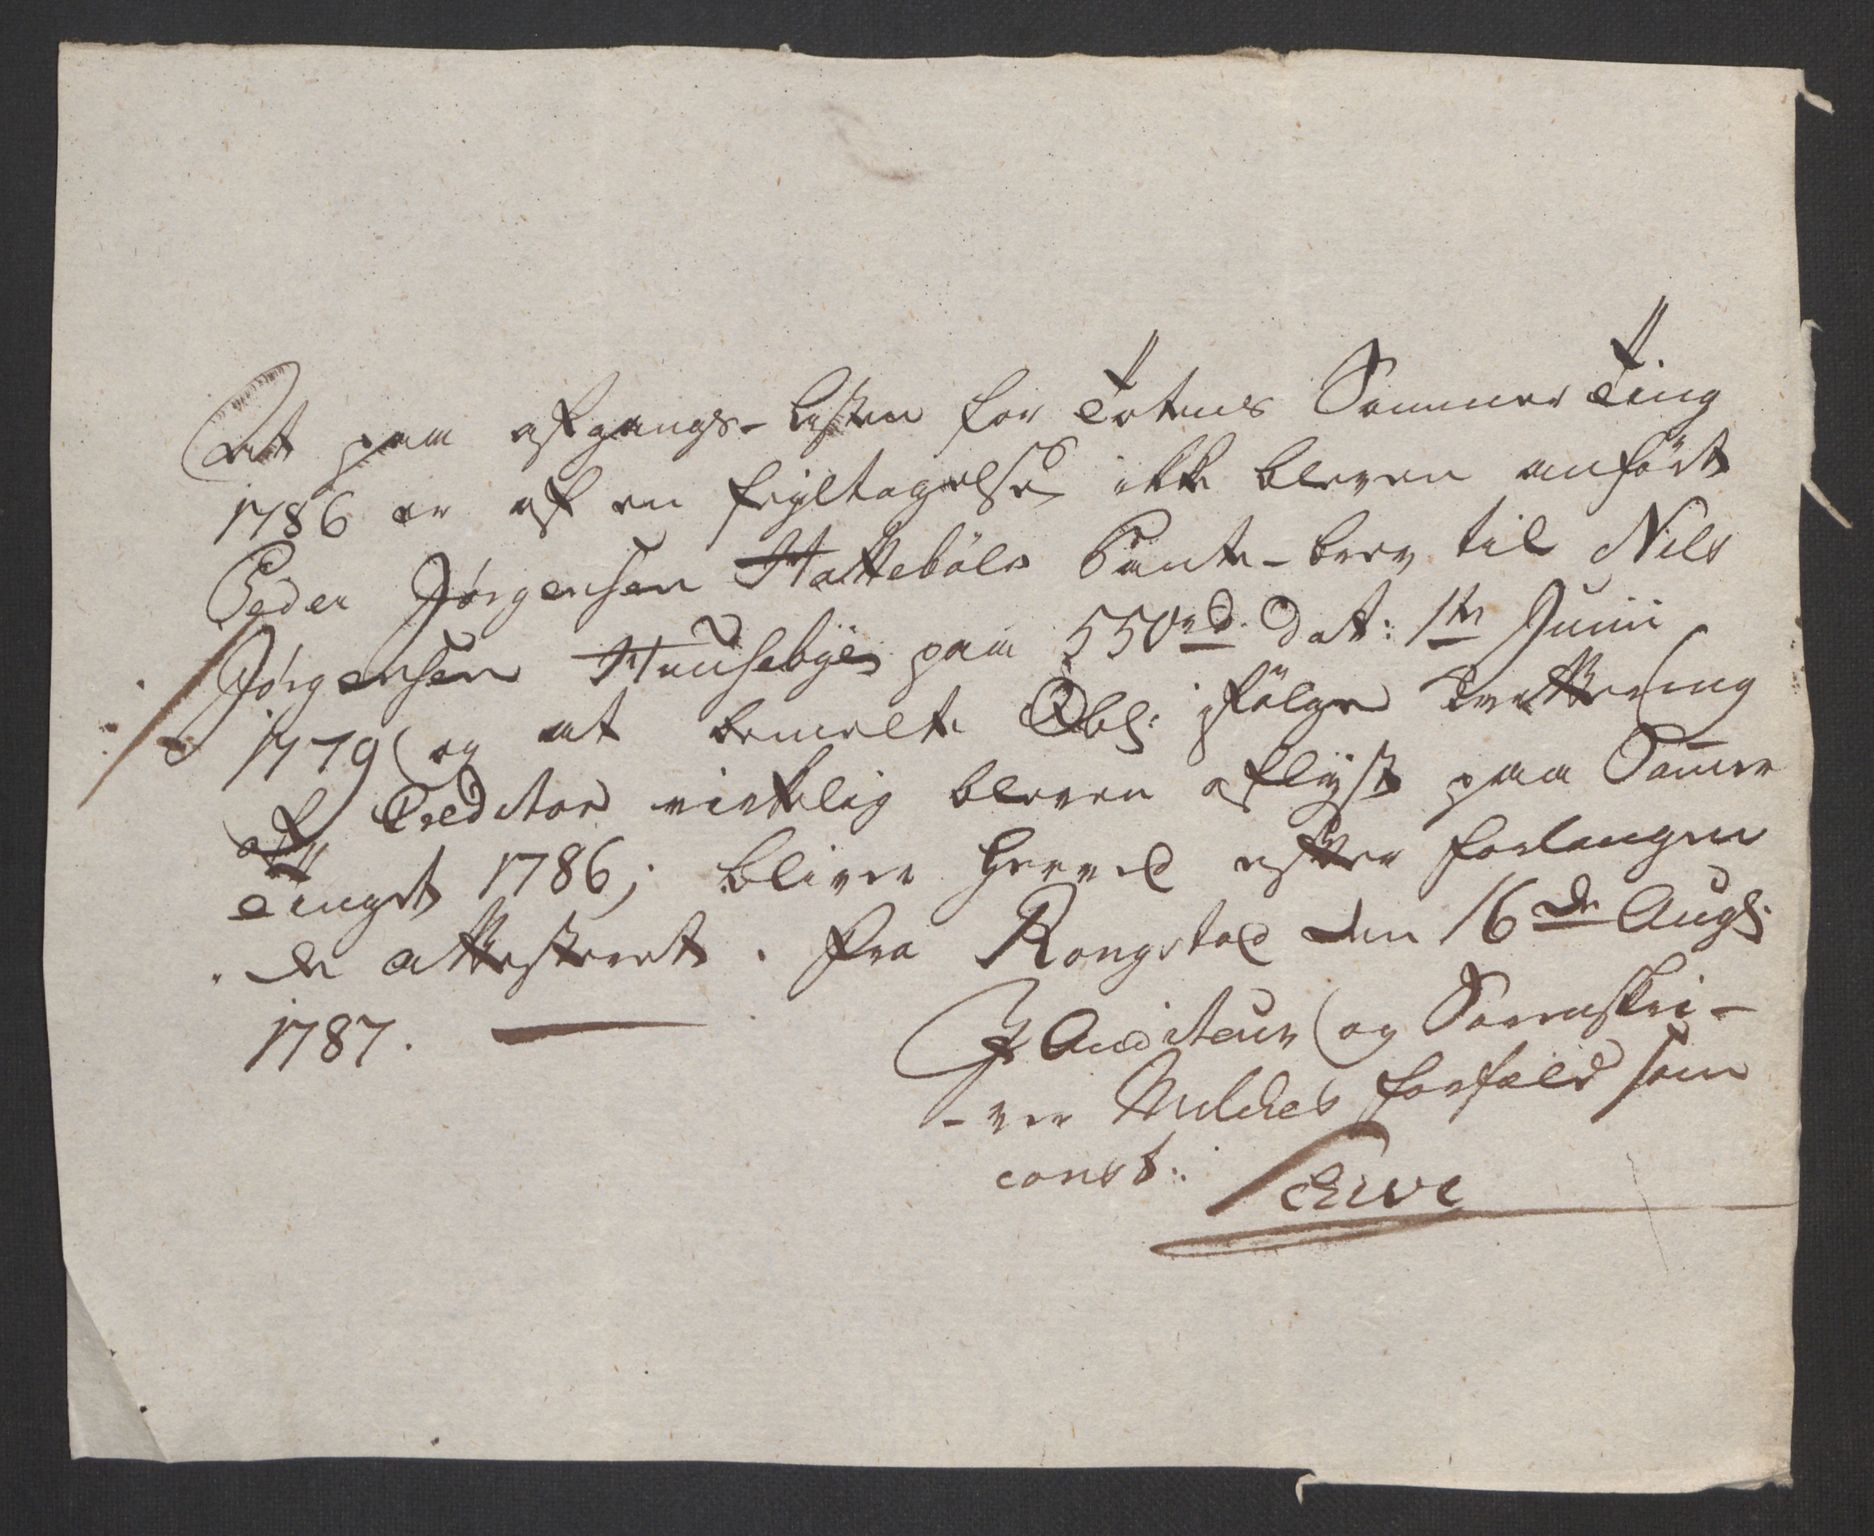 At paa afgangs-Listen for Totens Sommer Ting
1786 er af en feyltagelse ikke bleven anført
Peder Jørgensen Hattebøls Pante-brev til Nils
Jørgensen Huusebye paa 550rd. Dat: 1te Junii
1779 og at bemelte Obl: ifølge Qvittering
af Creditor virkelig bleven aflyst paa Somer
Tinget 1786; bliver herved efter forlangen
de attesteret. fra Rongstad den 16de Augs:
1787.
I Auditeur og Sorenskri-
-ver forfald som
const: